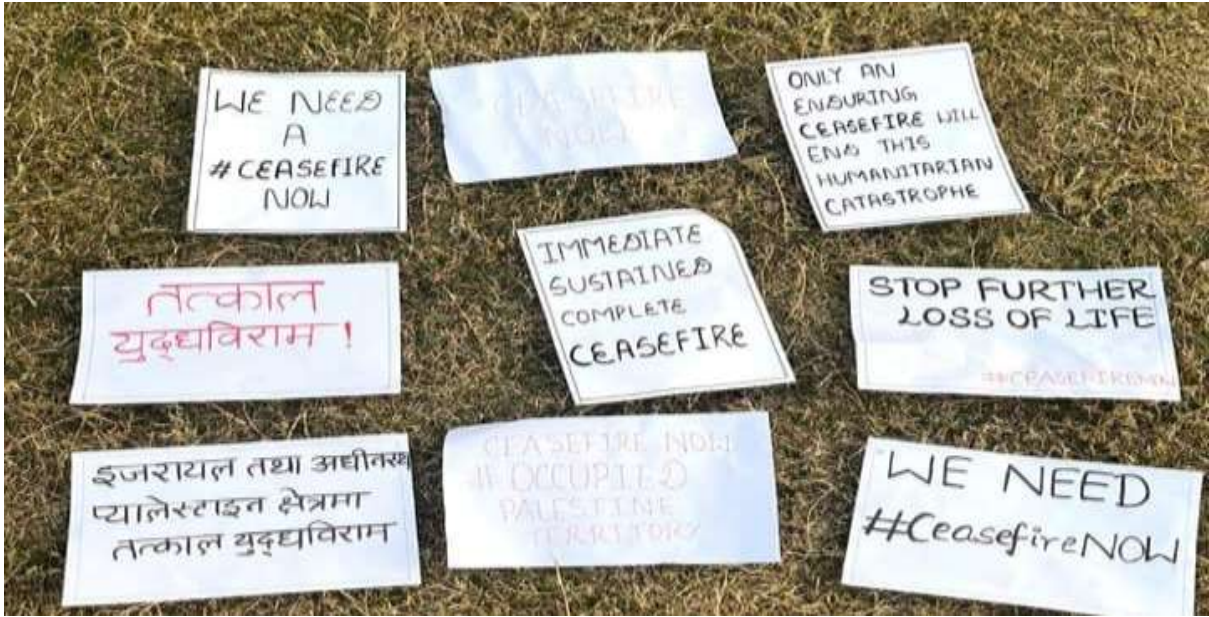 WE NEED
A
#CEASEFIRE
NOW
CEASEFIRE
NOW
ONLY AN
ENDURING
CEASEFIRE WILL
END THIS
HUMANITARIAN
CATASTROPHE
तत्काल
युद्धविराम !
IMMEDIATE
SUSTAINED
COMPLETE
CEASEFIRE
STOP FURTHER
LOSS OF LIFE
#CEASEFIRENOW
इजरायल तथा अधीनस्थ
प्यालेस्टाइन क्षेत्रमा
तत्काल युद्धविराम
CEASEFIRE NOW
# OCCUPIED
PALESTINE
TERRITORY
WE NEED
#CeasefireNOW